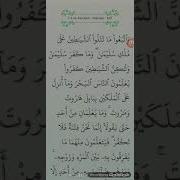 وَٱتَّبَعُوا۟ مَا تَتْلُوا۟ ٱلشَّيَٰطِينُ عَلَىٰ
مُلْكِ سُلَيْمَٰنَ ۖ وَمَا كَفَرَ سُلَيْمَٰنُ
وَلَٰكِنَّ ٱلشَّيَٰطِينَ كَفَرُوا۟
يُعَلِّمُونَ ٱلنَّاسَ ٱلسِّحْرَ وَمَآ أُنزِلَ
عَلَى ٱلْمَلَكَيْنِ بِبَابِلَ هَٰرُوتَ
وَمَٰرُوتَ ۚ وَمَا يُعَلِّمَانِ مِنْ أَحَدٍ
حَتَّىٰ يَقُولَآ إِنَّمَا نَحْنُ فِتْنَةٌ فَلَا
تَكْفُرْ ۖ فَيَتَعَلَّمُونَ مِنْهُمَا مَا
يُفَرِّقُونَ بِهِۦ بَيْنَ ٱلْمَرْءِ وَزَوْجِهِۦ ۚ